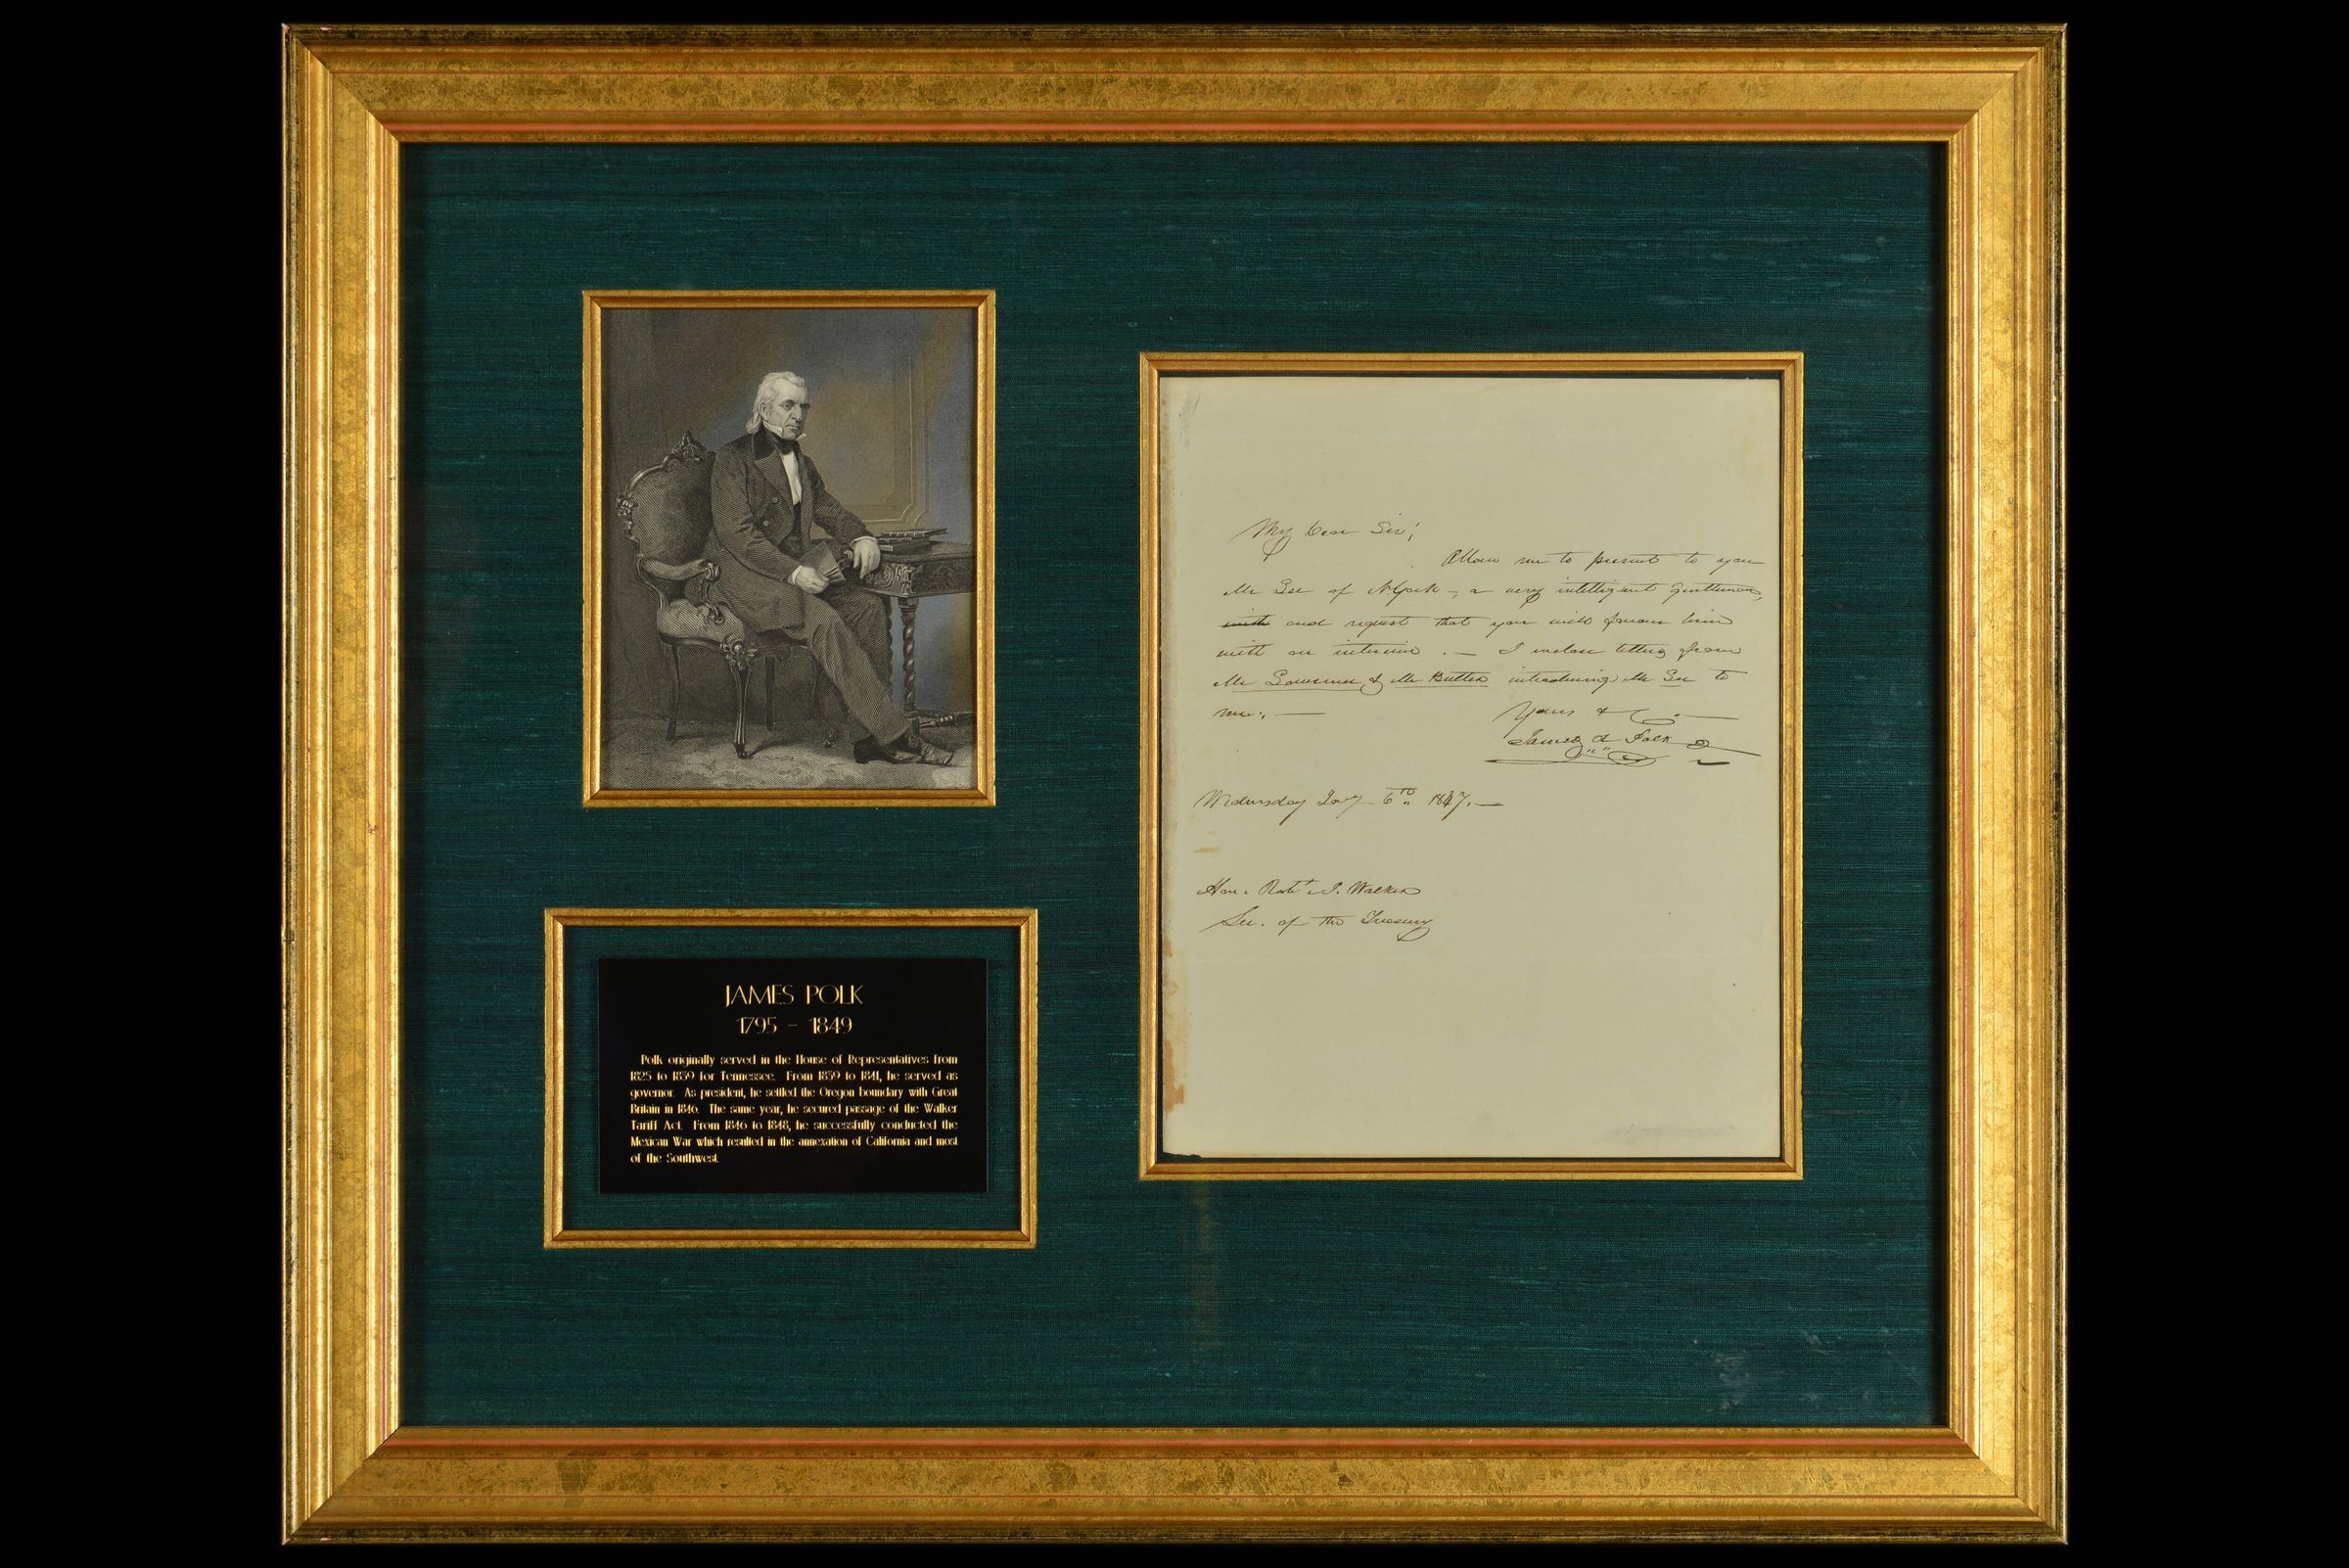 JAMES POLK
1795 – 1849
Polk originally served in the House of Representatives from
1825 to 1839 for Tennessee. From 1839 to 1841, he served as
governor. As president, he settled the Oregon boundary with Great
Britain in 1846. The same year, he secured passage of the Walker
Tariff Act. From 1846 to 1848, he successfully conducted the
Mexican War which resulted in the annexation of California and most
of the Southwest.
My Dear Sir;
Allow me to present to you
Mr Lee of N. York -, a very intelligent gentleman,
with and request that you will favour him
with an interview. — I enclose letters from
Mr Lawrence & Mr Butler introducing Mr Lee to
me. —
Yours &c. —
James K Polk
Wednesday Jany 6th 1847. —
Hon. Robt. J. Walker
Sec. of the Treasury